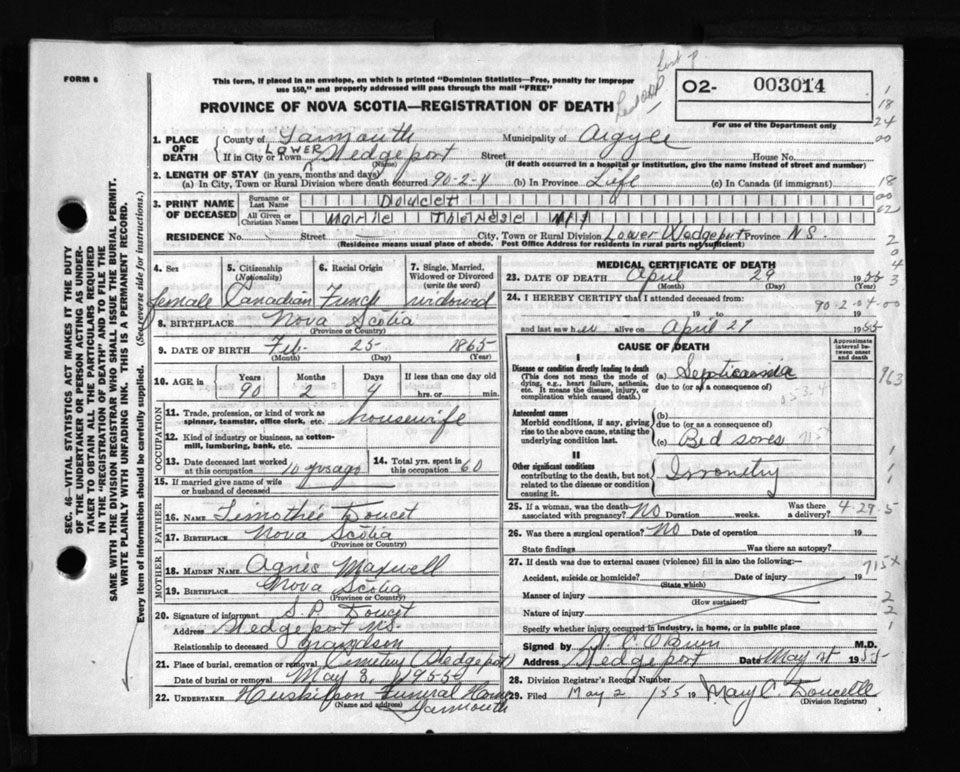 FORM 6
This form, if placed in an envelope, on which is printed "Dominion Statistics—Free, penalty for improper
use $50," and properly addressed will pass through the mail "FREE"
PROVINCE OF NOVA SCOTIA—REGISTRATION OF DEATH
02- 003014
For use of the Department only
1. PLACE OF DEATH
County of Yarmouth Municipality of Argyle
If in City or Town LOWER Wedgeport Street House No.
(Name) (If death occurred in a hospital or institution, give the name instead of street and number)
2. LENGTH OF STAY (in years, months and days)
(a) In City, Town or Rural Division where death occurred 90-2-4 (b) In Province Life (c) In Canada (if immigrant)
3. PRINT NAME OF DECEASED
Surname or Last Name Doucet
All Given or Christian Names Marie Therese Mrs
RESIDENCE No. Street City, Town or Rural Division Lower Wedgeport Province N.S.
(Residence means usual place of abode. Post Office Address for residents in rural parts not sufficient)
4. Sex female
5. Citizenship (Nationality) Canadian
6. Racial Origin French
7. Single, Married, Widowed or Divorced (write the word) widowed
8. BIRTHPLACE Nova Scotia
(Province or Country)
9. DATE OF BIRTH Feb. 25 1865
(Month) (Day) (Year)
10. AGE in Years 90 Months 2 Days 4 If less than one day old
hrs. or min.
OCCUPATION
11. Trade, profession, or kind of work as spinner, teamster, office clerk, etc. housewife
12. Kind of industry or business, as cotton-mill, lumbering, bank, etc.
13. Date deceased last worked at this occupation 10 yrs ago
14. Total yrs. spent in this occupation 60
15. If married give name of wife or husband of deceased
FATHER
16. NAME Timothée Doucet
17. BIRTHPLACE Nova Scotia
(Province or Country)
MOTHER
18. MAIDEN NAME Agnes Maxwell
19. BIRTHPLACE Nova Scotia
(Province or Country)
20. Signature of informant S. P. Doucet
Address Wedgeport N.S.
Relationship to deceased grandson
21. Place of burial, cremation or removal Cemetery Wedgeport
Date of burial or removal May 3, 1955
22. UNDERTAKER Huskilson Funeral Home
(Name and address) Yarmouth
MEDICAL CERTIFICATE OF DEATH
23. DATE OF DEATH April 29 1955
(Month) (Day)
24. I HEREBY CERTIFY that I attended deceased from:
90-2-04-00
19 to 19
and last saw her alive on April 29 1955
CAUSE OF DEATH
Approximate interval between onset and death
I
Disease or condition directly leading to death
(This does not mean the mode of dying, e.g., heart failure, asthenia, etc. It means the disease, injury, or complication which caused death.)
(a) Septicaemia
due to (or as a consequence of)
Antecedent causes
Morbid conditions, if any, giving rise to the above cause, stating the underlying condition last.
(b)
due to (or as a consequence of)
(c) Bed sores
II
Other significant conditions
contributing to the death, but not related to the disease or condition causing it.
25. If a woman, was the death associated with pregnancy? NO Duration weeks. Was there a delivery? 4-29-5
26. Was there a surgical operation? NO Date of operation 19
State findings Was there an autopsy?
27. If death was due to external causes (violence) fill in also the following:
Accident, suicide or homicide? Date of injury 19
(State which)
Manner of injury
(How sustained)
Nature of injury
Specify whether injury occurred in industry, in home, or in public place
Signed by M.D.
Address Wedgeport Date May 1955
28. Division Registrar's Record Number
29. Filed May 2 /55 19 Mary C. Doucette
(Division Registrar)
SEC. 46—VITAL STATISTICS ACT MAKES IT THE DUTY
OF THE UNDERTAKER OR PERSON ACTING AS UNDER-
TAKER TO OBTAIN ALL THE PARTICULARS REQUIRED
IN THE "REGISTRATION OF DEATH" AND TO FILE THE
SAME WITH THE DIVISION REGISTRAR WHO SHALL ISSUE THE BURIAL PERMIT.
WRITE PLAINLY WITH UNFADING INK. THIS IS A PERMANENT RECORD.
Every item of information should be carefully supplied. (See reverse side for instructions.)
1
18
24
00
18
00
02
2
0
4
3
963
1
1
1
715x
2
2
1